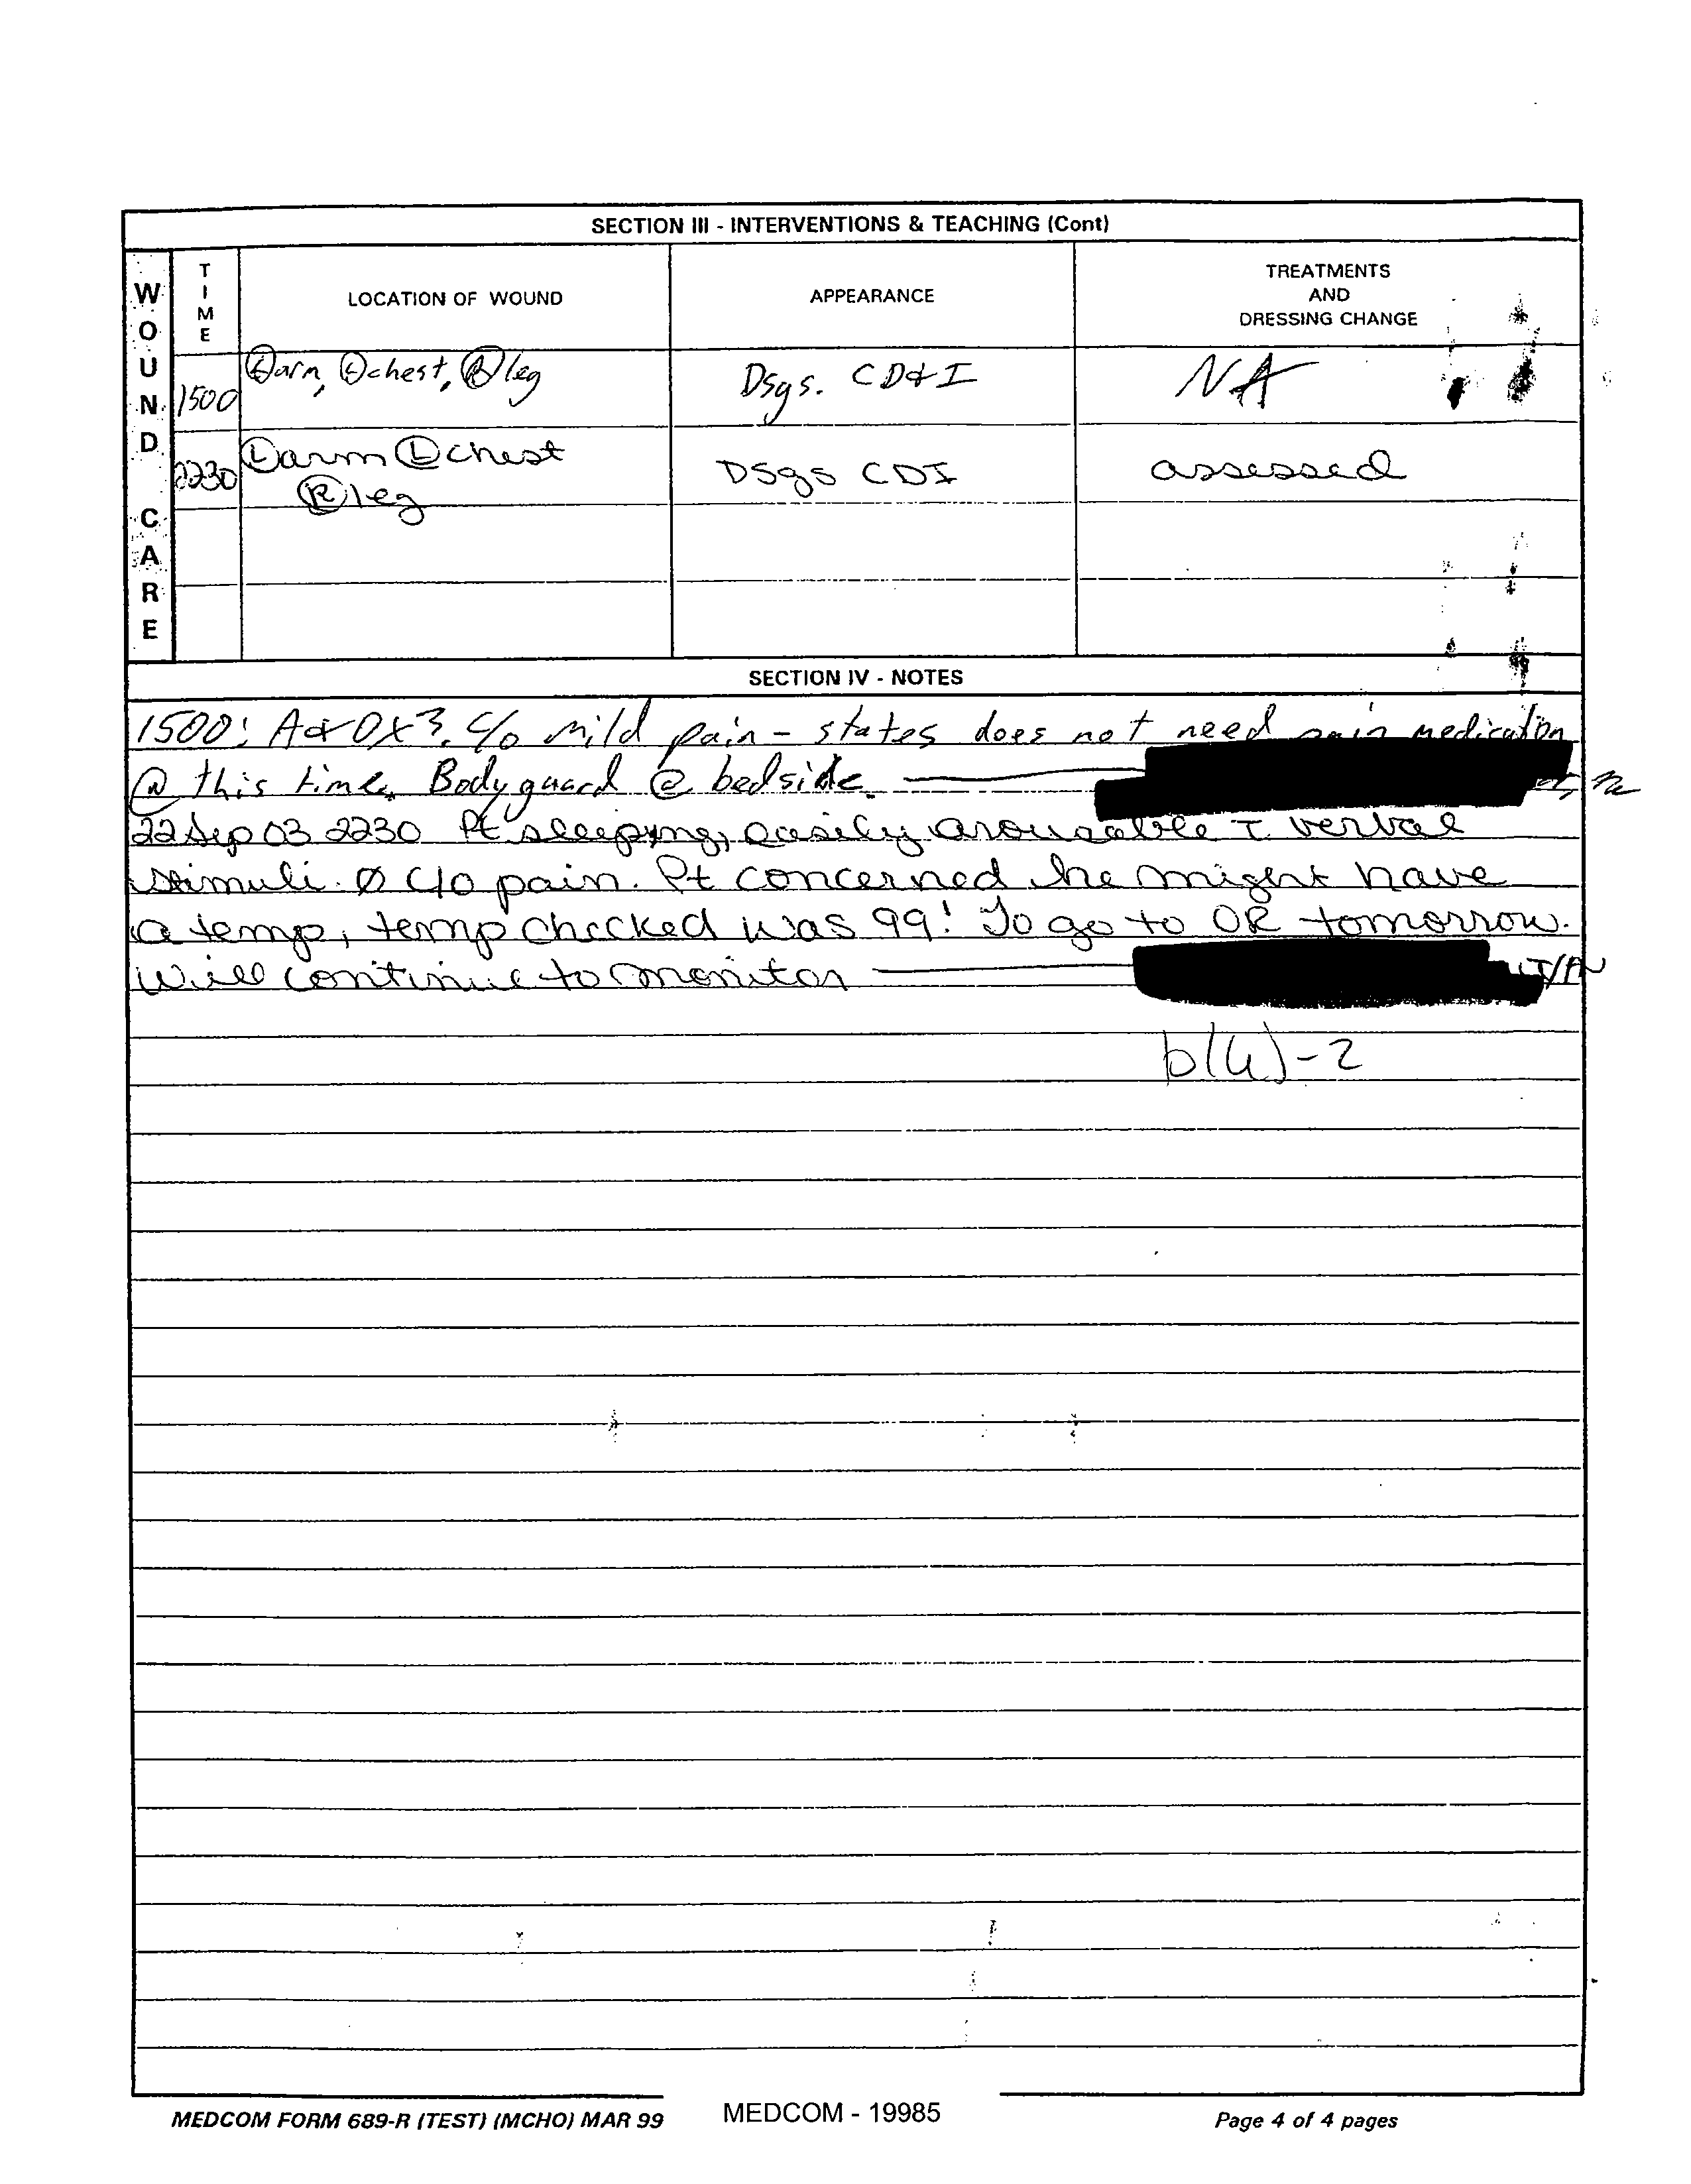 SECTION III - INTERVENTIONS & TEACHING (Cont)
WOUND CARE
TIME
LOCATION OF WOUND
APPEARANCE
TREATMENTS
AND
DRESSING CHANGE
1500 Ⓛ arm, Ⓛ chest, Ⓡ leg Dsgs. CD&I NA
2230 Ⓛ arm Ⓛ chest Dsgs CDI assessed
Ⓡ leg
SECTION IV - NOTES
1500: A&OX3. C/o mild pain - states does not need pain medication
@ this time. Bodyguard @ bedside.
22 Sep 03 2230 Pt sleeping, easily arousable c̄ verbal
stimuli. Ø c/o pain. Pt concerned he might have
a temp, temp checked was 99! To go to OR tomorrow.
Will continue to monitor
b(6)-2
MEDCOM FORM 689-R (TEST) (MCHO) MAR 99
MEDCOM - 19985
Page 4 of 4 pages